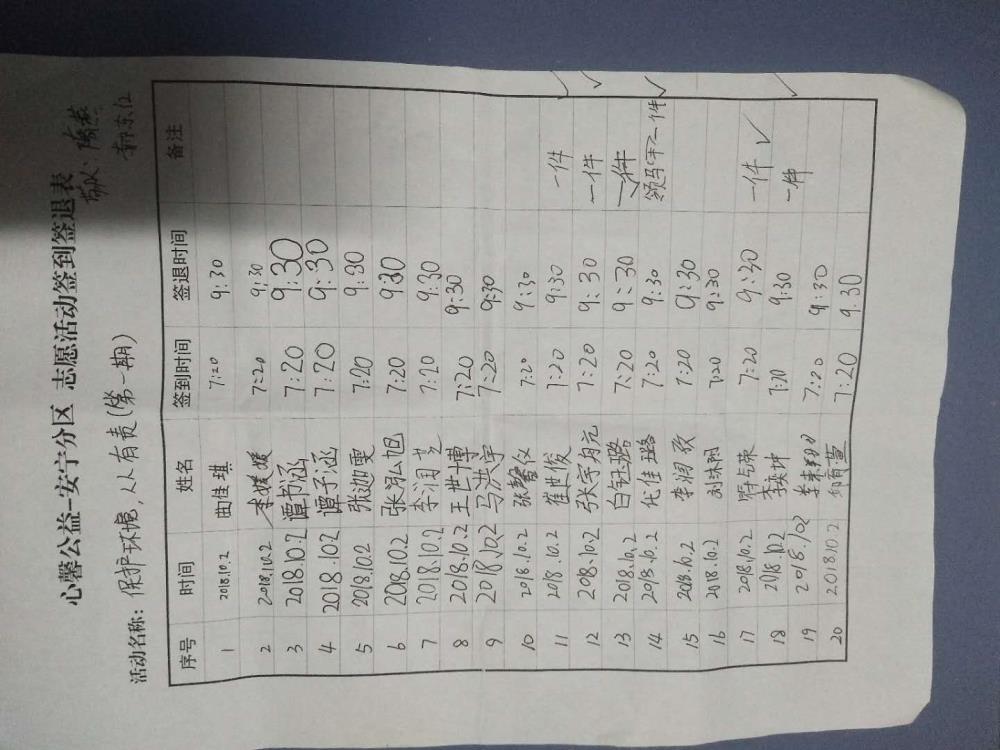 心馨公益-安宁分区 志愿活动签到签退表
活动名称: 保护环境,人人有责(第一期)
序号 时间 姓名 签到时间 签退时间 备注
1 2018.10.2 曲佳琪 7:20 9:30
2 2018.10.2 李媛媛 7:20 9:30
3 2018.10.2 谭书涵 7:20 9:30
4 2018.10.2 谭子涵 7:20 9:30
5 2018.10.2 张迦雯 7:20 9:30
6 2018.10.2 张泓旭 7:20 9:30
7 2018.10.2 李润芝 7:20 9:30
8 2018.10.2 王世博 7:20 9:30
9 2018.10.2 马洪宇 7:20 9:30
10 2018.10.2 张馨仪 7:20 9:30
11 2018.10.2 崔世俊 7:20 9:30 一件
12 2018.10.2 张宇 7:20 9:30 一件
13 2018.10.2 白钰璐 7:20 9:30 一件
14 2018.10.2 代佳璐 7:20 9:30 领马甲一件
15 2018.10.2 李润 7:20 9:30
16 2018.10.2 刘沐阳 7:20 9:30
17 2018.10.2 7:20 9:30 一件
18 2018.10.2 7:20 9:30 一件
19 2018.10.2 7:20 9:30
20 2018.10.2 7:20 9.30